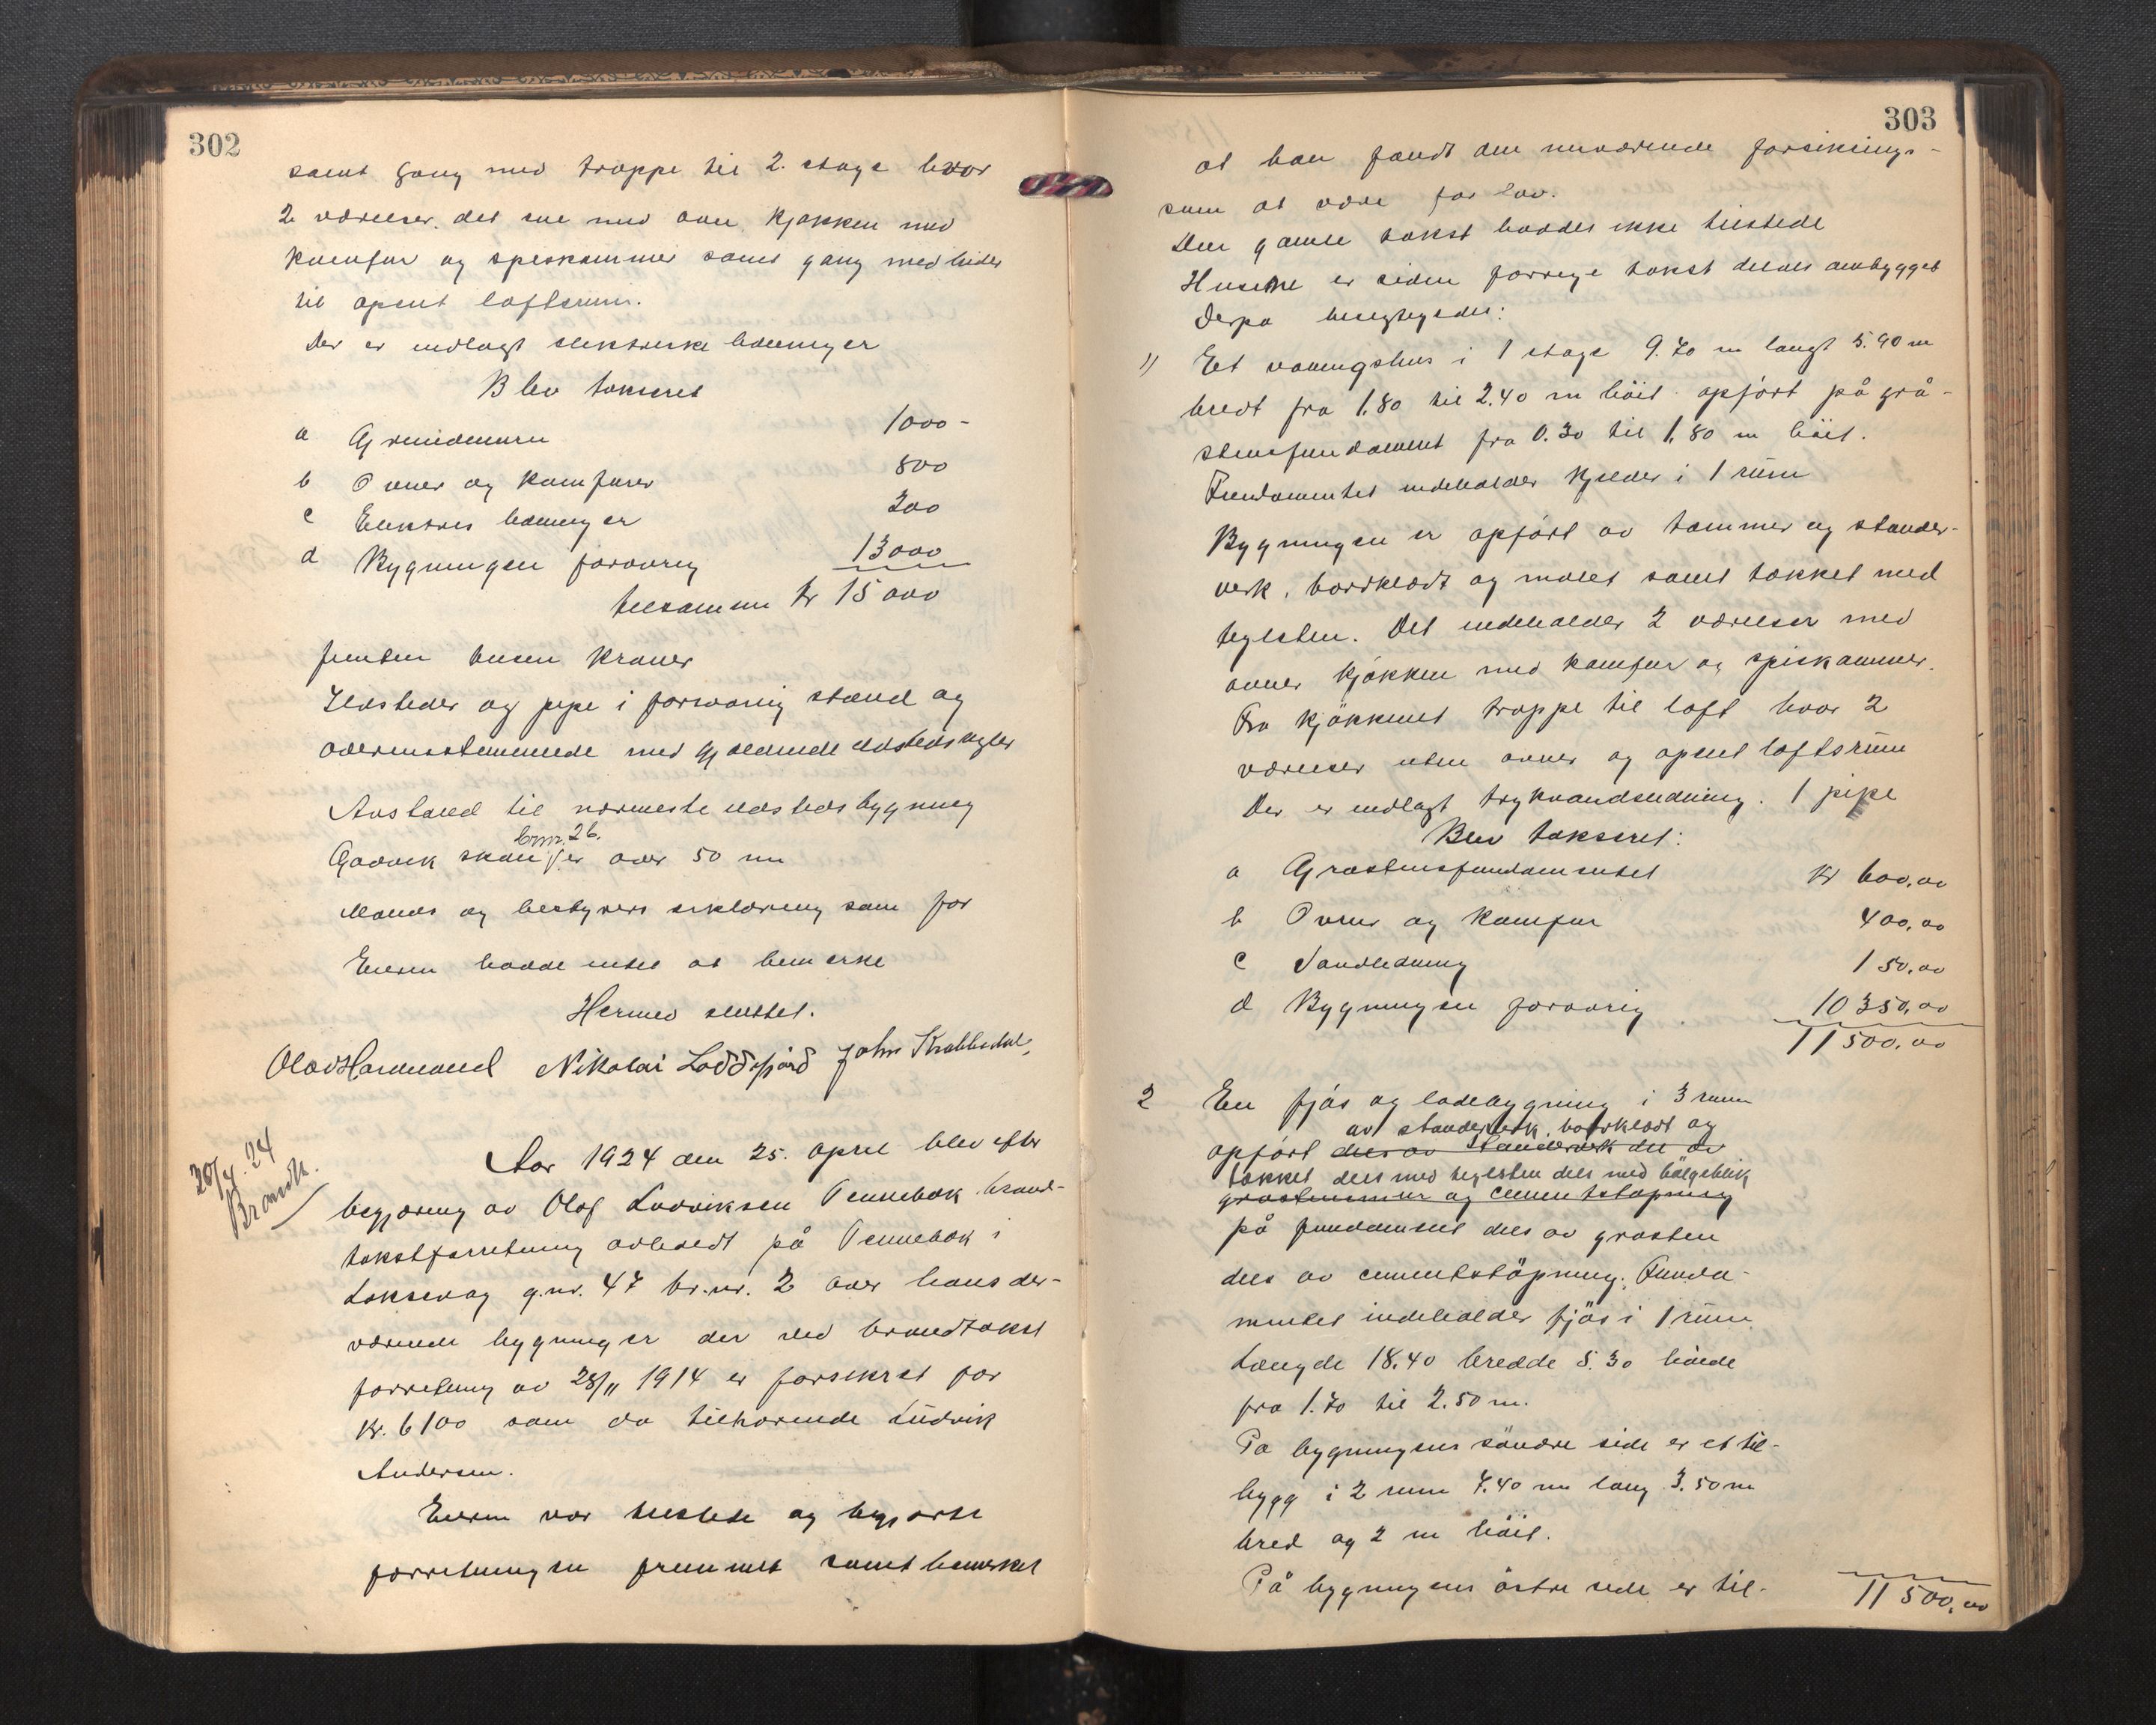 302
samt gang med trappe til 2. etage hvor
2 værelser. det ene med ovn, kjøkken med
komfur og spiskammer samt gang med leider
til åpent loftsrum.
Der er indlagt elektriske ledninger
Blev takseret
a Grundmuren 1000 -
b Ovner og komfurer 800
c Elektris ledninger 200
d Bygningen forøvrig 13000
tilsammen kr 15000
femten tusen kroner
Ildsteder og pipe i forsvarlig stand og
overensstemmende med gjældende ildstedsregler
Avstand til nærmeste ildstedsbygning
brnr. 26.
Gravdik skau er over 50 m
Mands og bestyrers erklæring som før
Eieren hadde intet at bemerke
Hermed sluttet.
Olav Hammand Nikolai Loddefjord John Krabbedal,
28/4. 24
Brandt.
Aar 1924 den 25. april blev efter
begjæring av Olaf Ludviksen Pennebæk brand-
takstforretning avholdt på Pennebæk i
Laksevåg g.nr. 47 br.nr. 2 over hans der-
værende bygninger der ved brandtakst
forretning av 28/11 1914 er forsikret for
kr. 6100 som da tilhørende Ludvik
Andersen.
Eieren var tilstede og begjærte
forretningen fremmet samt bemerket
303
at han fandt den nuværende forsikrings-
sum at være for lav.
Den gamle takst havdes ikke tilstede
Husene er siden forrige takst delvis ombygget
Derpå besigtigedes:
1) Et våningshus i 1 etage 9.70 m langt 5.90 m
bredt fra 1.80 til 2.40 m höit opført på grå-
stensfundament fra 0.30 til 1.80 m höit.
Fundamentet indeholder kjelder i 1 rum
Bygningen er opført av tømmer og stander-
verk, bordklædt og malet samt tækket med
teglsten. Det indeholder 2 værelser med
ovner kjøkken med komfur og spiskammer.
Fra kjökkenet trappe til loft hvor 2
værelser uten ovner og åpent loftsrum
Der er indlagt trykvandsledning. 1 pipe
Blev takseret:
a Gråstensfundamentet kr 600,00
b Ovner og komfur 400,00
c Vandledning 150,00
d Bygningen forøvrig. 10350,00
11500,00
2 En fjøs og ladebygning i 3 rum
av standerverk, bordklædt og
opført dels av standerverk dels av
tækket dels med teglsten dels med bölgeblik
gråstensmur og cementstøpning
på fundament dels av gråsten
dels av cementstöpning. Funda-
mentet indeholder fjøs i 1 rum
Længde 18.40 bredde 5.30 höide
fra 1.70 til 2.50 m.
På bygningens söndre side er et til-
bygg i 2 rum 7.40 m lang 3.50 m
bred og 2 m höit.
På bygningens östre side er til-
11500,00